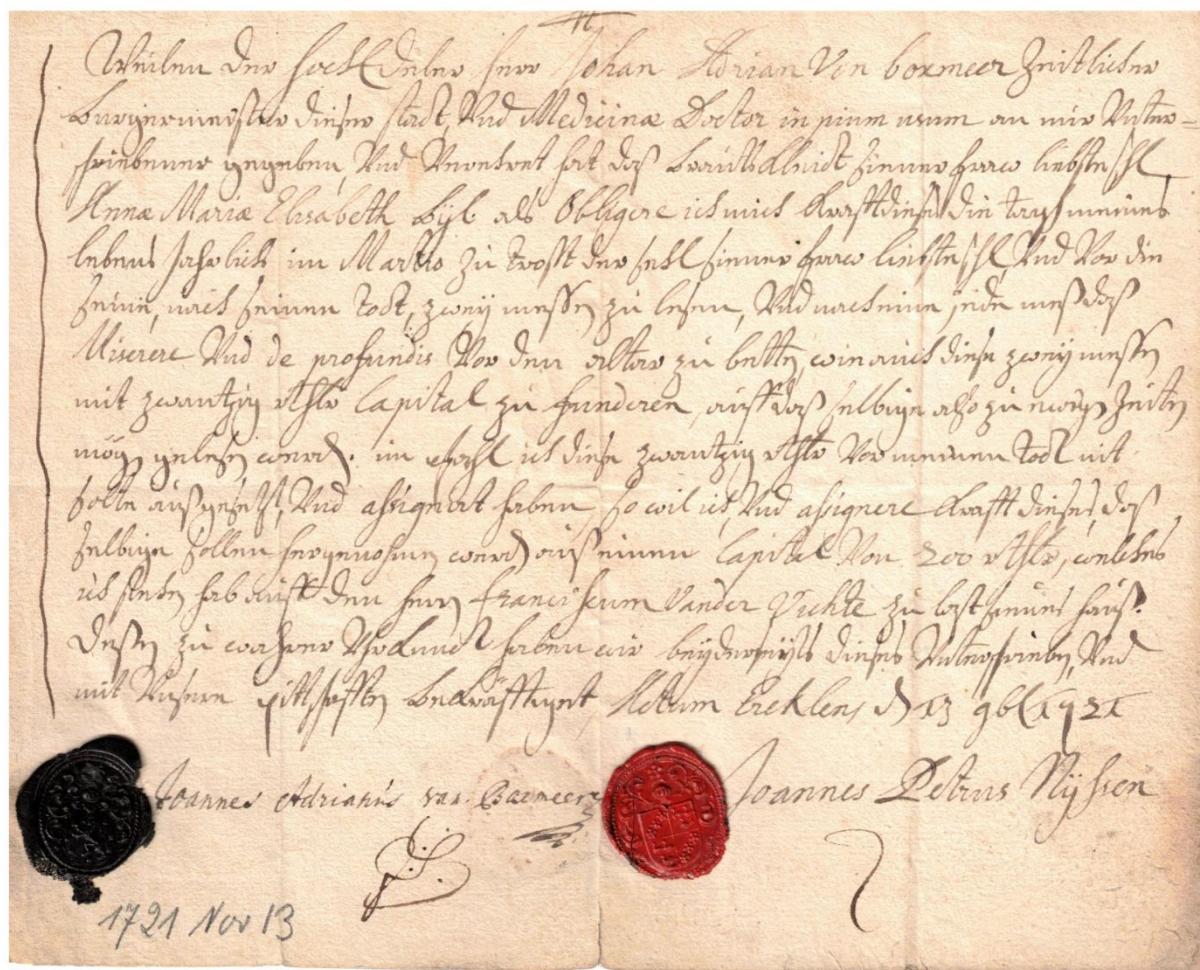 Weilen der hochEdeler herr Johan Adrian Von boxmeer Zeitlicher
burgermeister dieser stadt, Und Medicinæ Doctor in pium usum an mir Unter=
schriebener gegeben, Und Verehret hat daß brautskleidt seiner fraw liebste shl
Annæ Mariæ Elisabeth byl als Obligere ich mich krafft dieses die tag meines
lebens Jahrlich im Martio zu trost der sehl seiner fraw liebste shl, Und Vor die
seine, nach seinen todt, zwey messen zu lesen, Und nach eine jede meß daß
Miserere Und de profundis Vor den altar zu betten, wie auch diese zwey messen
mit zwantzig rthlr Capital zu funderen, auff daß selbige also zu ewigen Zeiten
mögen gelesen werden. im fahl ich diese zwantzig rthlr Vor meinen todt nit
solte außgesetzt, Und assignert haben, so wil ich, Und assignere krafft dieses, daß
selbige sollen hergenohmen werden auß einen Capital Von 200 rthlr, welches
ich stehen hab auff den herrn Franciscum Vander Vichte zu last seines hauß.
Dessen zu wahrer Uhrkundt haben wir beyderseits dieses Unterschrieben, Und
mit Unsere pittschafften bekräfftiget Actum Ercklens d 13 9b 1721
Joannes Adrianus van Baexmeer
Joannes Petrus Nyssen
1721 Nov 13